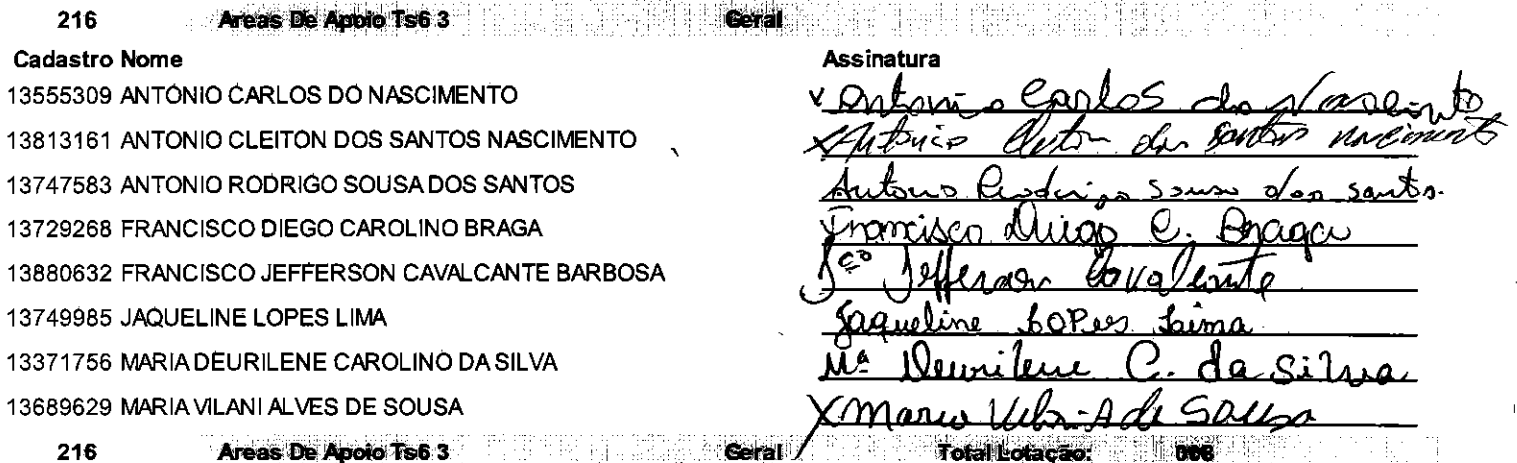 216 Areas De Apoio Ts6 3 Geral
Cadastro Nome Assinatura
13555309 ANTONIO CARLOS DO NASCIMENTO x Antonio Carlos do Nascimento
13813161 ANTONIO CLEITON DOS SANTOS NASCIMENTO X Antonio Cleiton dos Santos nascimento
13747583 ANTONIO RODRIGO SOUSA DOS SANTOS Antonio Rodrigo Sousa dos santos.
13729268 FRANCISCO DIEGO CAROLINO BRAGA Francisco Diego C. Braga
13880632 FRANCISCO JEFFERSON CAVALCANTE BARBOSA Fco Jefferson Cavalcante
13749985 JAQUELINE LOPES LIMA Jaqueline LOPes Laima
13371756 MARIA DEURILENE CAROLINO DA SILVA Mª Deurilene C. da Silva
13689629 MARIA VILANI ALVES DE SOUSA X Maria A de Sousa
216 Areas De Apoio Ts6 3 Geral Total Lotação: